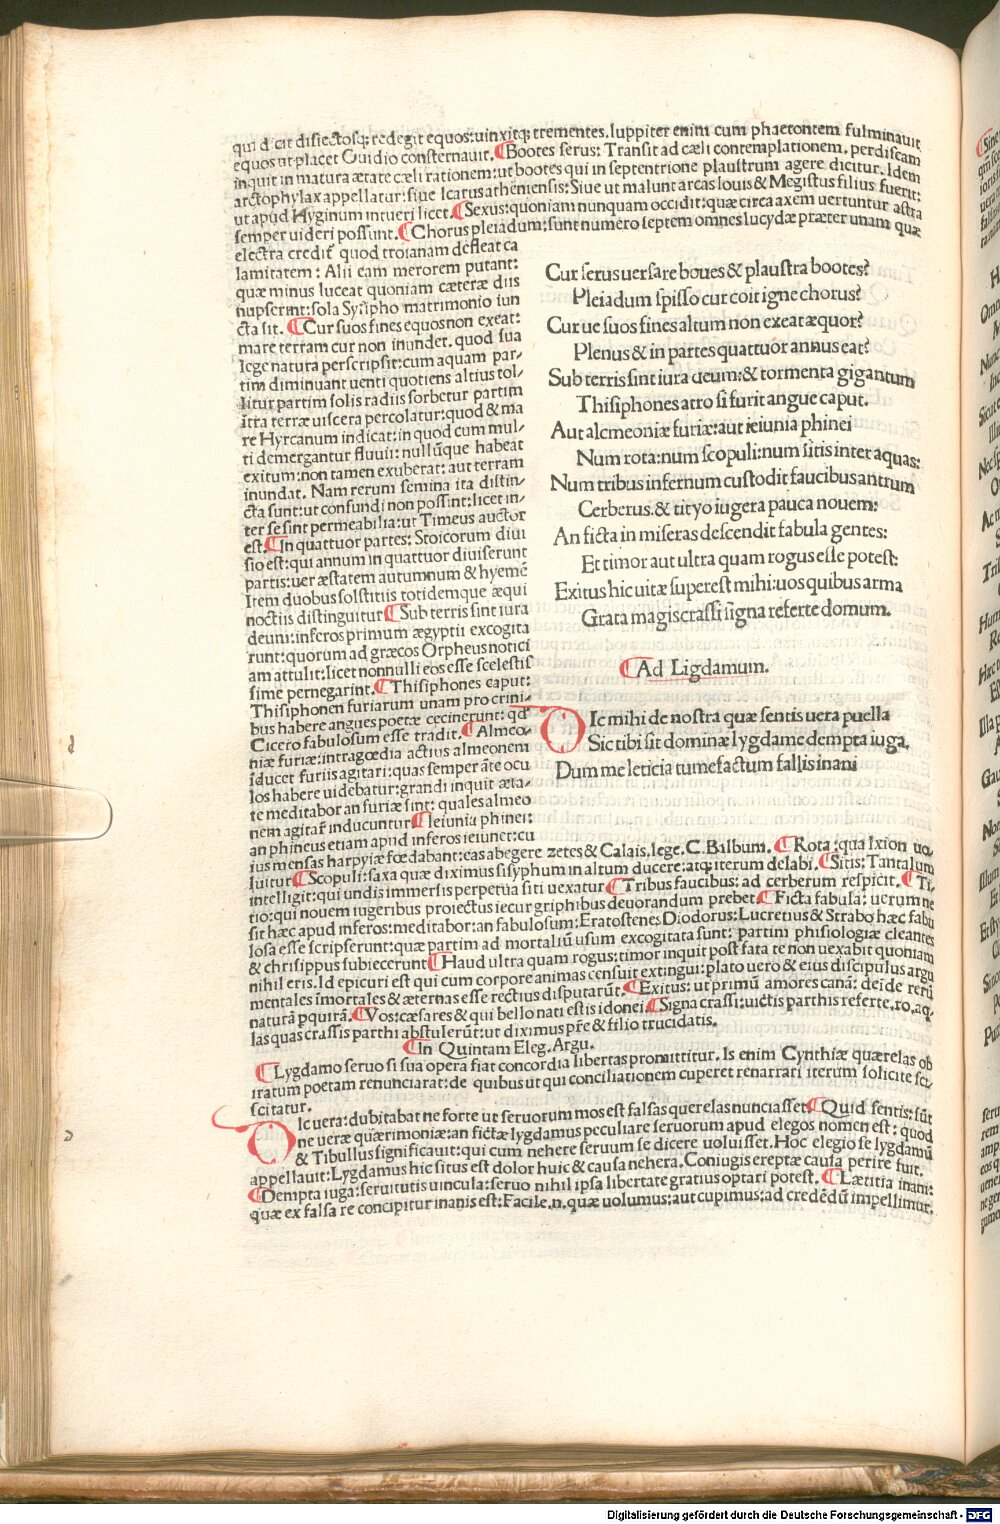 qui d cit disiectosq; redegit equos: uinxitq; trementes. Iuppiter enim cum phaetontem fulminauit
equos ut placet Ouidio consternauit. ¶ Bootes serus: Transit ad cæli contemplationem. perdiscam
inquit in matura ætate cæli rationem: ut bootes qui in septentrione plaustrum agere dicitur. Idem
arctophylax appellatur: siue Icarus atheniensis: Siue ut malunt arcas Iouis & Megistus filius fuerit:
ut apud Hyginum intueri licet. ¶ Sexus: quoniam nunquam occidit: quæ circa axem uertuntur astra
semper uideri possunt. ¶ Chorus pleiadum: sunt numero septem omnes lucydæ præter unam quæ
electra credit᷑ quod troianam defleat ca
lamitatem: Alii eam merorem putant:
quæ minus luceat quoniam cæteræ diis
nupserint: sola Sysipho matrimonio iun
cta sit. ¶ Cur suos fines equos non exeat:
mare terram cur non inundet. quod sua
lege natura perscripsit: cum aquam par-
tim diminuant uenti quotiens altius tol-
litur partim solis radiis sorbetur partim
itra terræ uiscera percolatur: quod & ma
re Hyrcanum indicat: in quod cum mul-
ti demergantur fluuii: nullūque habeat
exitum: non tamen exuberat: aut terram
inundat. Nam rerum semina ita distin-
cta sunt: ut confundi non possint: licet in-
ter se sint permeabilia: ut Timeus auctor
est. ¶ In quattuor partes: Stoicorum diui
sio est: qui annum in quattuor diuiserunt
partis: uer æstatem autumnum & hyemē
Item duobus solstitiis totidemque æqui
noctiis distinguitur ¶ Sub terris sint iura
deum: inferos primum ægyptii excogita
runt: quorum ad græcos Orpheus notici
am attulit: licet nonnulli eos esse scelestis
sime pernegarint. ¶ Thisiphones caput:
Thisiphonen furiarum unam pro crini-
bus habere angues poetæ cecinerunt: qđ
Cicero fabulosum esse tradit. ¶ Almeo-
niæ furiæ: in tragœdia actius almeonem
īducet furiis agitari: quas semper āte ocu
los habere uidebatur: grandi inquit æta-
te meditabor an furiæ sint: quales almeo
nem agitaſ inducuntur ¶ Ieiunia phinei:
an phineus etiam apud inferos ieiunet: cu
ius mensas harpyiæ fœdabant: eas abegere zetes & Calais. lege. C. Balbum. ¶ Rota: qua Ixion uo-
luitur ¶ Scopuli: saxa quæ diximus sisyphum in altum ducere: atq; iterum delabi. ¶ Sitis: Tantalum
intelligit: qui undis immersus perpetua siti uexatur ¶ Tribus faucibus: ad cerberum respicit. ¶ Ti-
tio: qui nouem iugeribus proiectus iecur griphibus deuorandum prebet ¶ Ficta fabula: uerum ne
sit hæc apud inferos: meditabor: an fabulosum: Eratostenes Diodorus: Lucretius & Strabo hæc fabu
losa esse scripserunt: quæ partim ad mortaliū usum excogitata sunt: partim phisiologiæ cleantes
& chrisippus subiecerunt ¶ Haud ultra quam rogus: timor inquit post fata te non uexabit quoniam
nihil eris. Id epicuri est qui cum corpore animas censuit extingui: plato uero & eius discipulus argu
mentales īmortales & æternas esse rectius disputarūt. ¶ Exitus: ut primū amores canā: deīde rerū
naturā ꝑquirā. ¶ Vos: cæsares & qui bello nati estis idonei. ¶ Signa crassi: uictis parthis referte. ro. aq.
las quas crassis parthi abstulerūt: ut diximus pr̄e & filio trucidatis.
¶ In Quintam Eleg. Argu.
¶ Lygdamo seruo si sua opera fiat concordia libertas promittitur. Is enim Cynthiæ quærelas ob
iratum poetam renunciarat: de quibus ut qui conciliationem cuperet renarrari iterum solicite sci-
scitatur.
DIc uera: dubitabat ne forte ut seruorum mos est falsas querelas nunciasset ¶ Quid sentis: sūt
ne ueræ quærimoniæ: an fictæ lygdamus peculiare seruorum apud elegos nomen est: quod
& Tibullus significauit: qui cum nehere seruum se dicere uoluisset. Hoc elegio se lygdamū
appellauit: Lygdamus hic situs est dolor huic & causa nehera. Coniugis ereptæ causa perire fuit.
¶ Dempta iuga: seruitutis uincula: seruo nihil ipsa libertate gratius optari potest. ¶ Lætitia inani:
quæ ex falsa re concipitur inanis est: Facile. n. quæ uolumus: aut cupimus: ad credēdū impellimur.
Cur serus uersare boues & plaustra bootes?
Pleiadum spisso cur coit igne chorus?
Cur ue suos fines altum non exeat æquor?
Plenus & in partes quattuor annus eat?
Sub terris sint iura deum: & tormenta gigantum
Thisiphones atro si furit angue caput.
Aut alcmeoniæ furiæ: aut ieiunia phinei
Num rota: num scopuli: num sitis inter aquas:
Num tribus infernum custodit faucibus antrum
Cerberus. & tityo iugera pauca nouem:
An ficta in miseras descendit fabula gentes:
Et timor aut ultra quam rogus esse potest:
Exitus hic uitæ superest mihi: uos quibus arma
Grata magis crassi signa referte domum.
¶ Ad Ligdamum.
DIc mihi de nostra quæ sentis uera puella
Sic tibi sit dominæ lygdame dempta iuga.
Dum me leticia tumefactum fallis inani
Digitalisierung gefördert durch die Deutsche Forschungsgemeinschaft - DFG